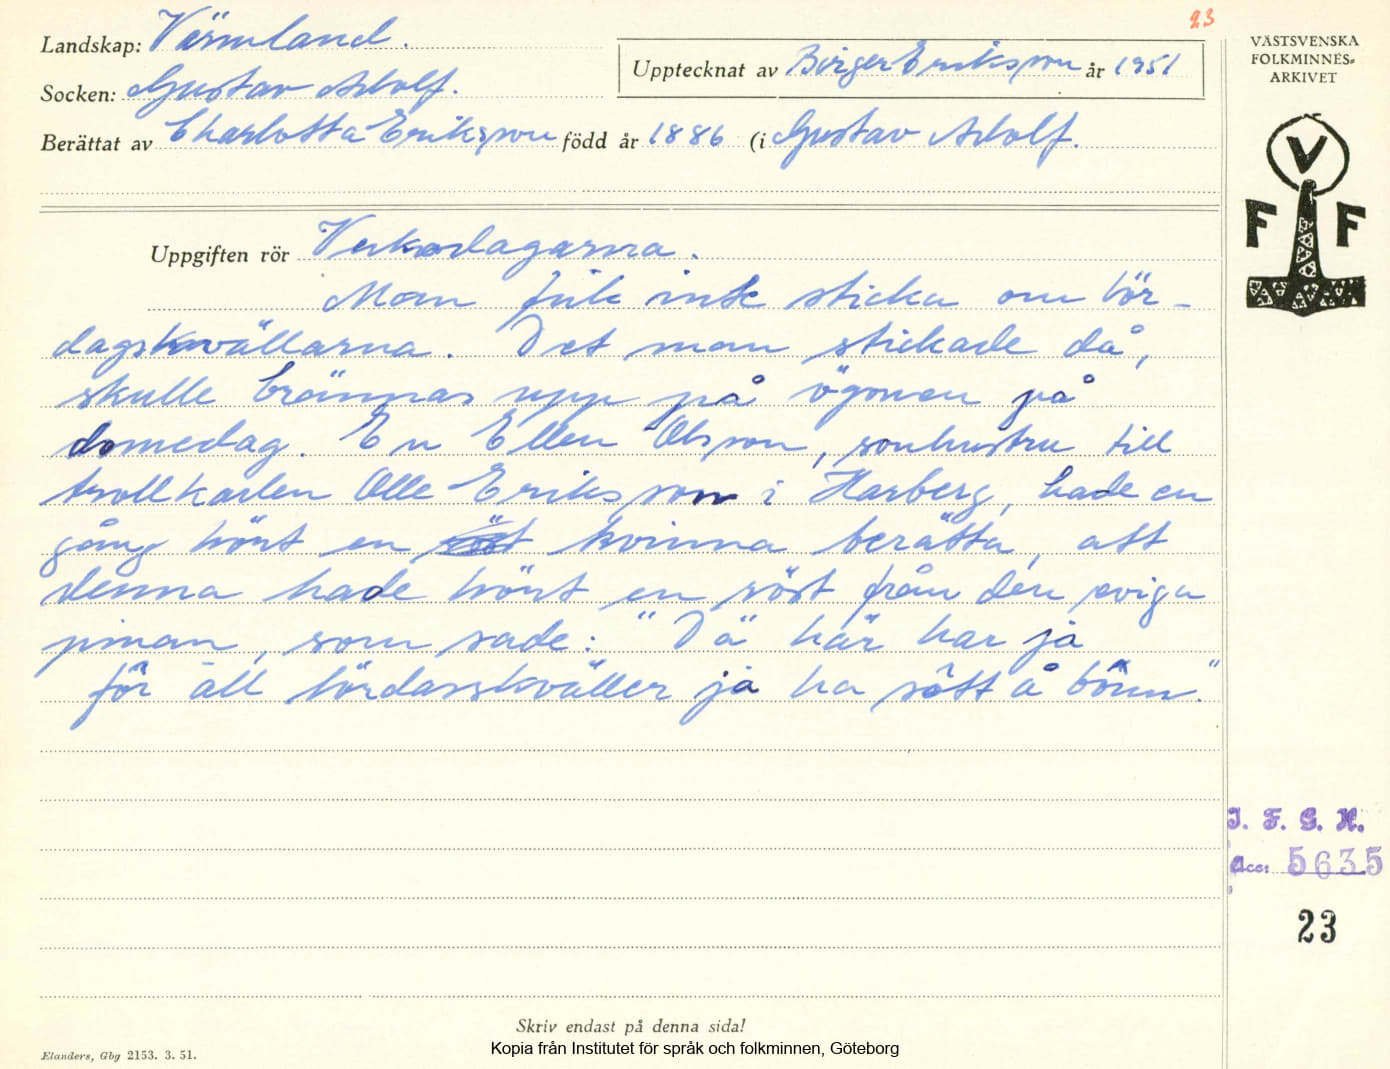 23
Landskap: Värmland.
Socken: Gustav Adolf.
Upptecknat av Birger Eriksson år 1951
Berättat av Charlotta Eriksson född år 1886 (i Gustav Adolf.
VÄSTSVENSKA
FOLKMINNES-
ARKIVET
V
F F
Uppgiften rör Veckodagarna.
Man fick inte sticka om lör-
dagskvällarna. Det man stickade då,
skulle brännas upp på ögonen på
domedag. En Ellen Olsson, sonhustru till
trollkarlen Olle Eriksson i Harberg, hade en
gång hört en kvinna berätta, att
denna hade hört en röst från den eviga
pinan, som sade: "Dä här har ja
för all lördasskväller ja ha sôtt å bônn."
I. F. G. H.
Acc: 5635
23
Skriv endast på denna sida!
Elanders, Gbg 2153. 3. 51.
Kopia från Institutet för språk och folkminnen, Göteborg